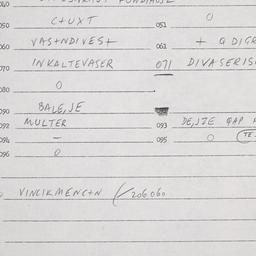 040
050 C+UXT 051 0
060 VAS+NDIVES+ 061 + Q DIGR
070 INKALTEVASER 071 DIVASERIS
080 0
090 BALE,SE
092 MULTER 093 DE,SZE QAP
094 – 095 0
096 0
VINCIKMENC+N /206060